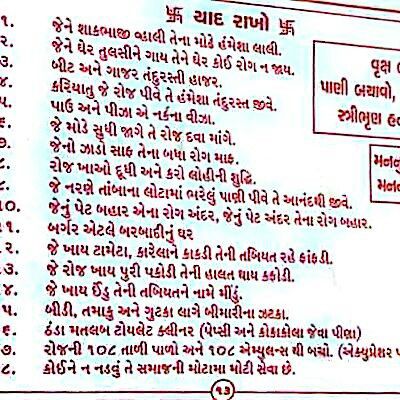 卐 યાદ રાખો 卐
૧. જેને શાકભાજી વ્હાલી તેના મોઢે હંમેશા લાલી.
૨. જેને ઘેર તુલસીને ગાય તેને ઘેર કોઈ રોગ ન જાય.
૩. બીટ અને ગાજર તંદુરસ્તી હાજર.
૪. કરિયાતુ જે રોજ પીવે તે હંમેશા તંદુરસ્ત જીવે.
૫. પાઉં અને પીઝા એ નર્કના વીઝા.
૬. જે મોડે સુધી જાગે તે રોજ દવા માંગે.
૭. જેનો ઝાડો સાફ તેના બધા રોગ માફ.
૮. રોજ ખાઓ દૂધી અને કરો લોહીની શુદ્ધિ.
૯. જે નરણે તાંબાના લોટામાં ભરેલું પાણી પીવે તે આનંદથી જીવે.
૧૦. જેનું પેટ બહાર એના રોગ અંદર, જેનું પેટ અંદર તેના રોગ બહાર.
૧૧. બર્ગર એટલે બરબાદીનું ઘર
૧૨. જે ખાય ટામેટા, કારેલાને કાકડી તેની તબિયત રહે ફાંકડી.
૧૩. જે રોજ ખાય પુરી પકોડી તેની હાલત થાય કફોડી.
૧૪. જે ખાય ઈંડુ તેની તબિયતને નામે મીંડું.
૧૫. બીડી, તમાકુ અને ગુટકા લાગે બીમારીના ઝટકા.
૧૬. ઠંડા મતલબ ટોયલેટ ક્લીનર (પેપ્સી અને કોકાકોલા જેવા પીણા)
૧૭. રોજની ૧૦૮ તાળી પાળો અને ૧૦૮ એમ્યુલન્સ થી બચો. (એક્યુપ્રેશર
૧૮. કોઈને ન નડવું તે સમાજની મોટામા મોટી સેવા છે.
વૃક્ષ
પાણી બચાવો,
સ્ત્રીભૃણ
૧૩